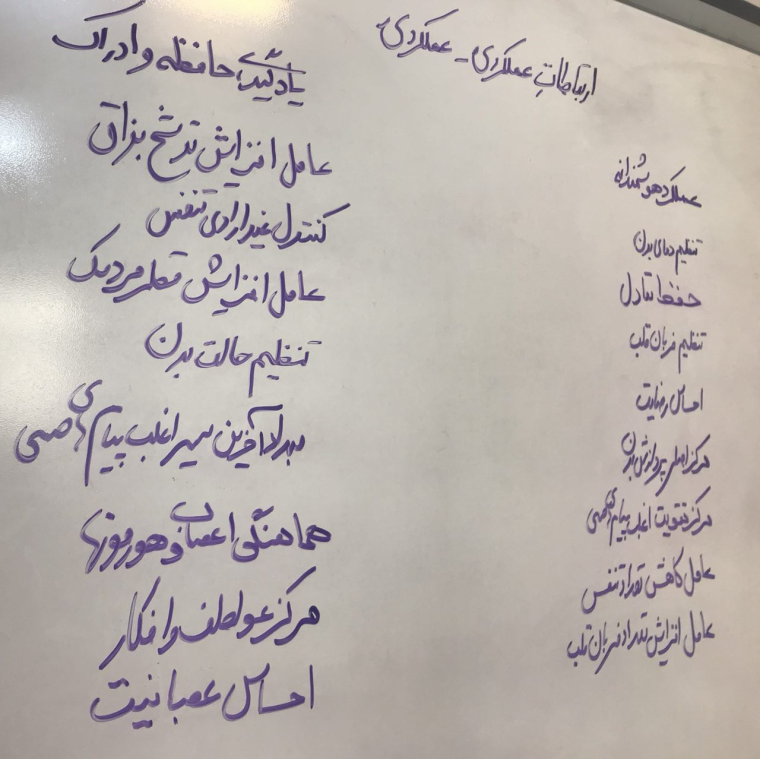 ارتباطاتِ عملکردی - عملکردی
عملکرد هوشمندانه
تنظیم دمای بدن
حفظ تعادل
تنظیم ضربان قلب
احساس رضایت
مرکز اصلی پردازش بدن
مرکز تقویت اغلب پیام های حسی
عامل کاهش تعداد تنفس
عامل افزایش تعداد ضربان قلب
یادگیری، حافظه و ادراک
عامل افزایش ترشح بزاق
کنترل غیر ارادی تنفس
عامل افزایش قطر مردمک
تنظیم حالت بدن
مسیر اغلب پیام های حسی
هماهنگی اعصاب و هورمونها
مرکز عواطف و افکار
احساس عصبانیت